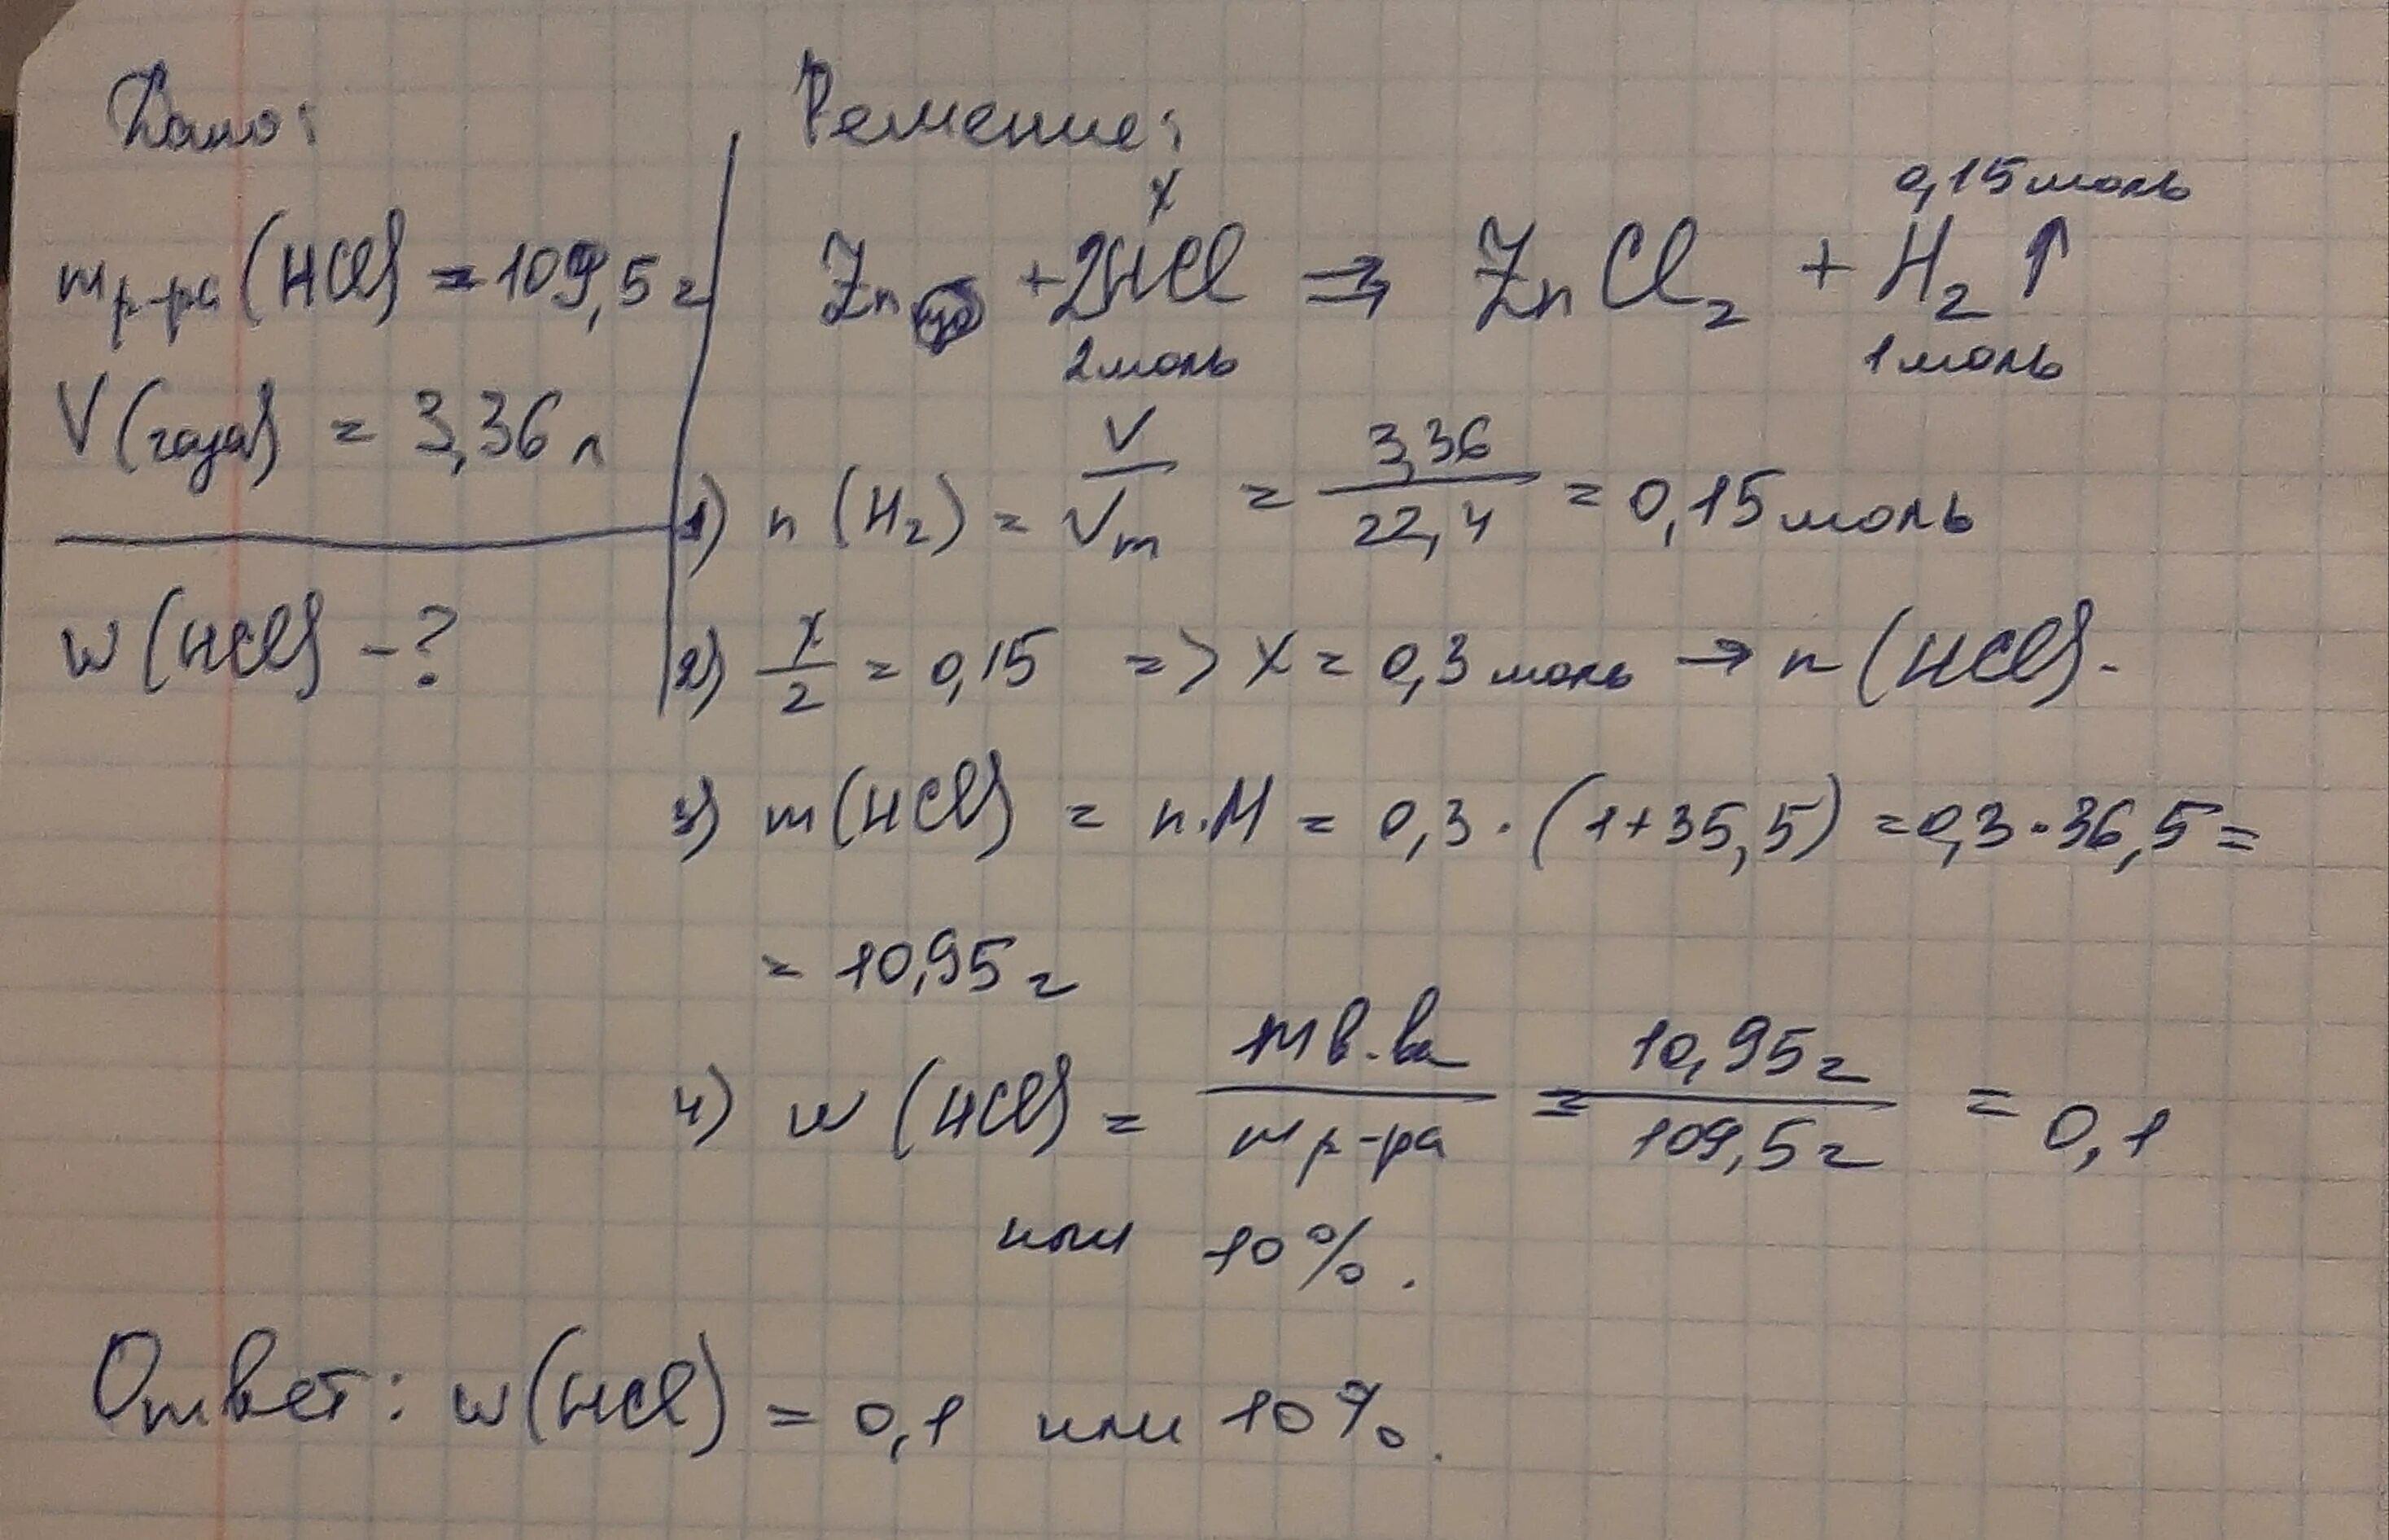 Дано:
m р-ра (HCl) = 109,5 г
V (газа) = 3,36 л
w (HCl) - ?
Решение:
x 0,15 моль
Zn + 2HCl => ZnCl₂ + H₂ ↑
2 моль 1 моль
1) n (H₂) = V / Vm = 3,36 / 22,4 = 0,15 моль
2) x / 2 = 0,15 => x = 0,3 моль → n (HCl).
3) m (HCl) = n · M = 0,3 · (1+35,5) = 0,3 · 36,5 =
= 10,95 г
4) w (HCl) = m в-ва / m р-ра = 10,95 г / 109,5 г = 0,1
или 10%.
Ответ: w (HCl) = 0,1 или 10%.